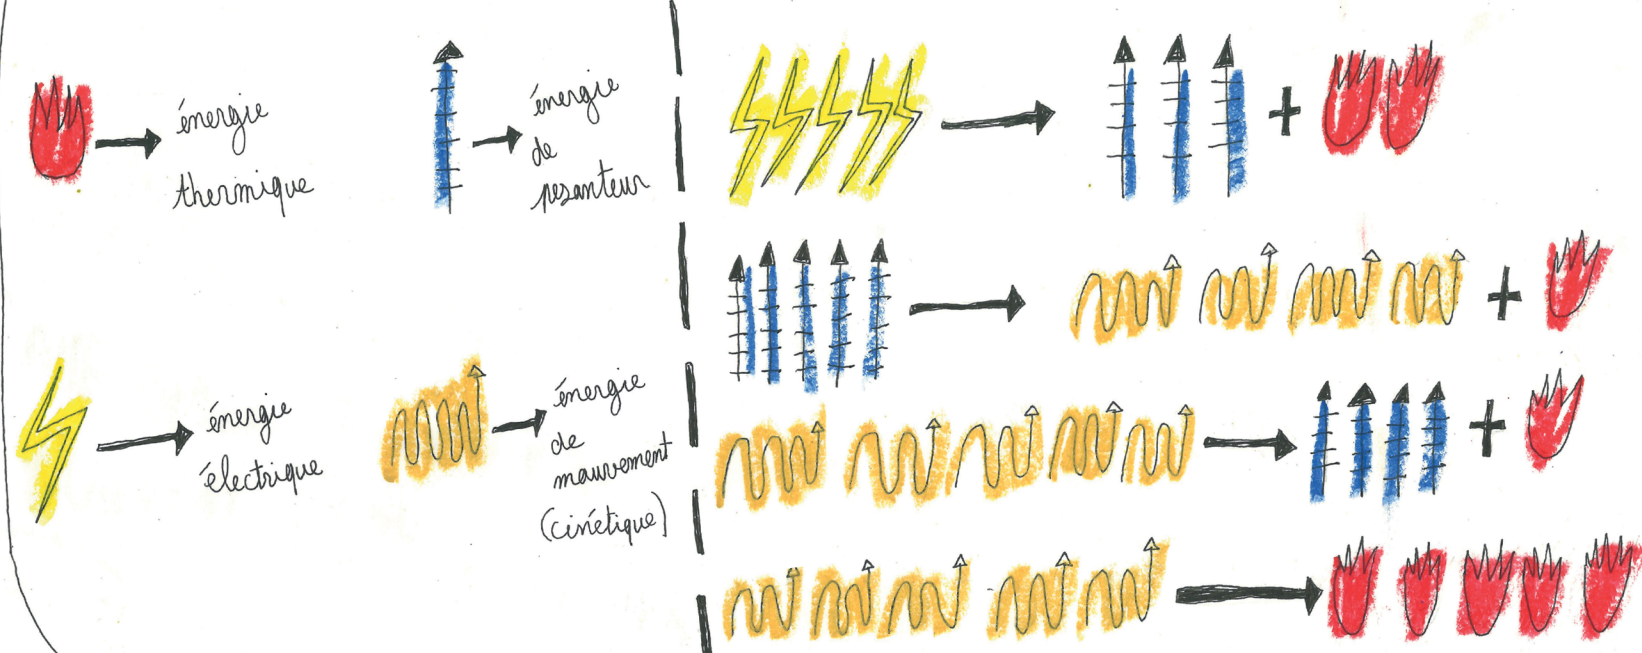 énergie
thermique
énergie
de
pesanteur
énergie
électrique
énergie
de
mauvement
(cinétique)